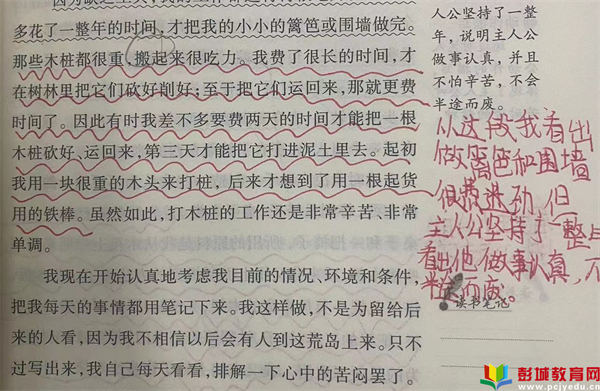 多花了一整年的时间，才把我的小小的篱笆或围墙做完。
那些木桩都很重，搬起来很吃力。我费了很长的时间，才
在树林里把它们砍好削好；至于把它们运回来，那就更费
时间了。因此有时我差不多要费两天的时间才能把一根
木桩砍好、运回来，第三天才能把它打进泥土里去。起初
我用一块很重的木头来打桩，后来才想到了用一根起货
用的铁棒。虽然如此，打木桩的工作还是非常辛苦、非常
单调。
我现在开始认真地考虑我目前的情况、环境和条件，
把我每天的事情都用笔记下来。我这样做，不是为留给后
来的人看，因为我不相信以后会有人到这荒岛上来。只不
过写出来，我自己每天看看，排解一下心中的苦闷罢了。
人公坚持了一整
年，说明主人公
做事认真，并且
不怕辛苦，不会
半途而废。
从这段我看出
做篱笆和围墙
很费进劲，但
主人公坚持了一整
看出他做事认真，不
半途而废。
读书笔记
彭城教育网
www.pcjyedu.cn